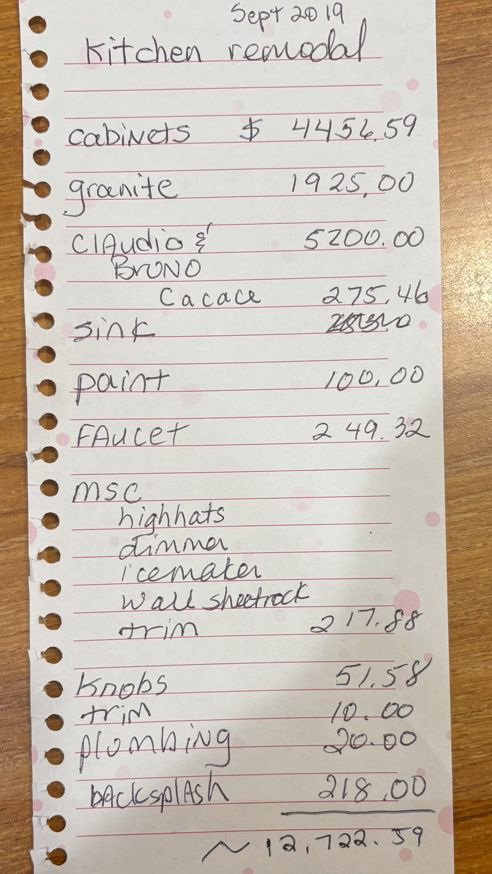 Sept 2019
Kitchen remodal
cabinets $ 4456.59
granite 1925.00
Claudio & 5200.00
Bruno
Cacace 275.46
sink
paint 100.00
Faucet 249.32
msc
highhats
dimmer
icemaker
wall sheetrock
trim 217.88
Knobs 51.58
trim 10.00
plombing 20.00
backsplash 218.00
~ 12,722.59